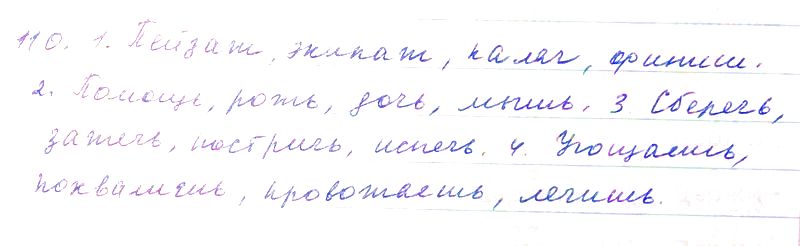 110. 1. Пейзаж, экипаж, калач, финиш.
2. Помощь, рожь, дочь, мышь. 3 Сберечь,
зажечь, постричь, испечь. 4. Угощаешь,
похвалишь, провожаешь, лечишь.